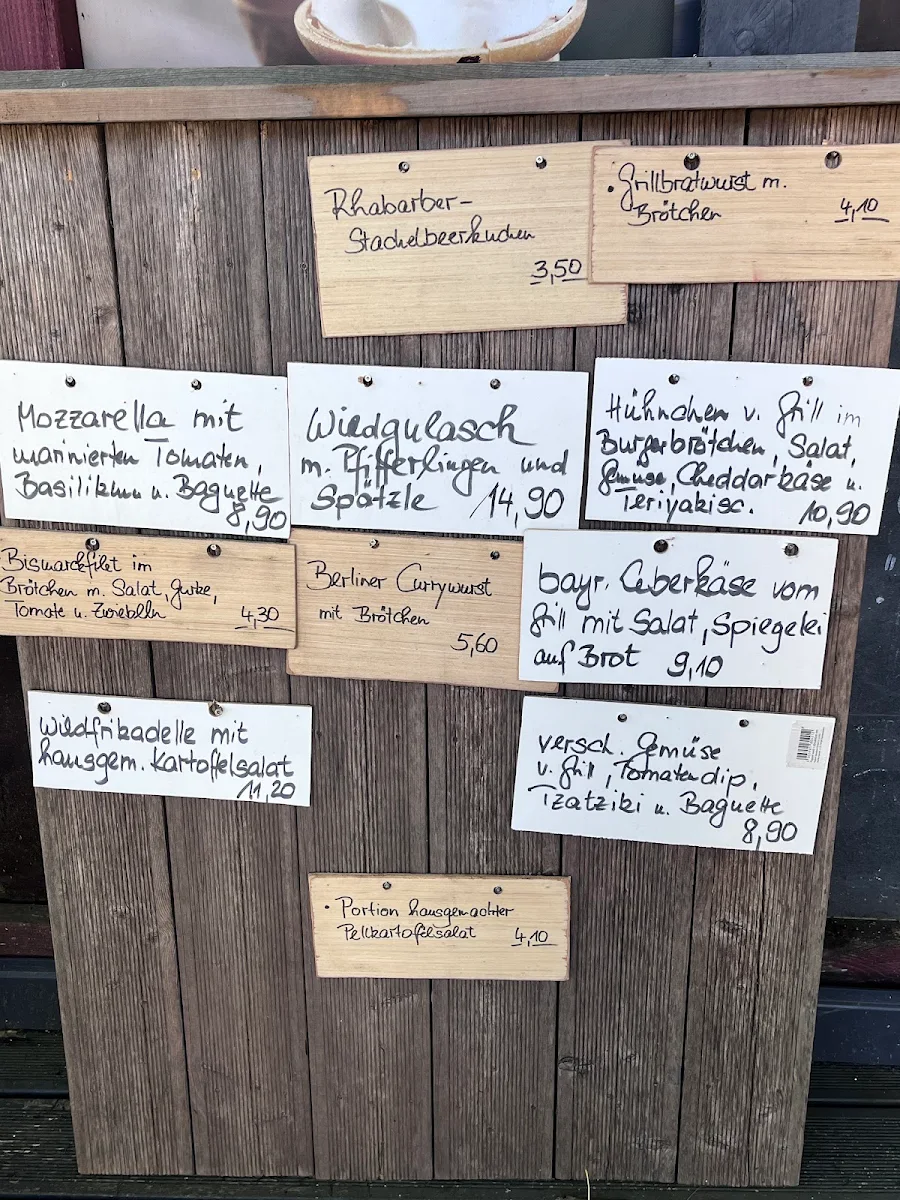 Rhabarber-
Stachelbeerkuchen
3,50
• Grillbratwurst m.
Brötchen
4,10
Mozzarella mit
marinierten Tomaten,
Basilikum u. Baguette
8,90
Wildgulasch
m. Pfifferlingen und
Spätzle 14,90
Hühnchen v. Grill im
Burgerbrötchen, Salat,
Gemüse, Cheddarkäse u.
Teriyakisc. 10,90
Bismarckfilet im
Brötchen m. Salat, Gurke,
Tomate u. Zwiebeln 4,30
Berliner Currywurst
mit Brötchen
5,60
bayr. Leberkäse vom
Grill mit Salat, Spiegelei
auf Brot 9,10
Wildfrikadelle mit
hausgem. Kartoffelsalat
11,20
versch. Gemüse
v. Grill, Tomatendip,
Tzatziki u. Baguette
8,90
• Portion hausgemachter
Pellkartoffelsalat 4,10